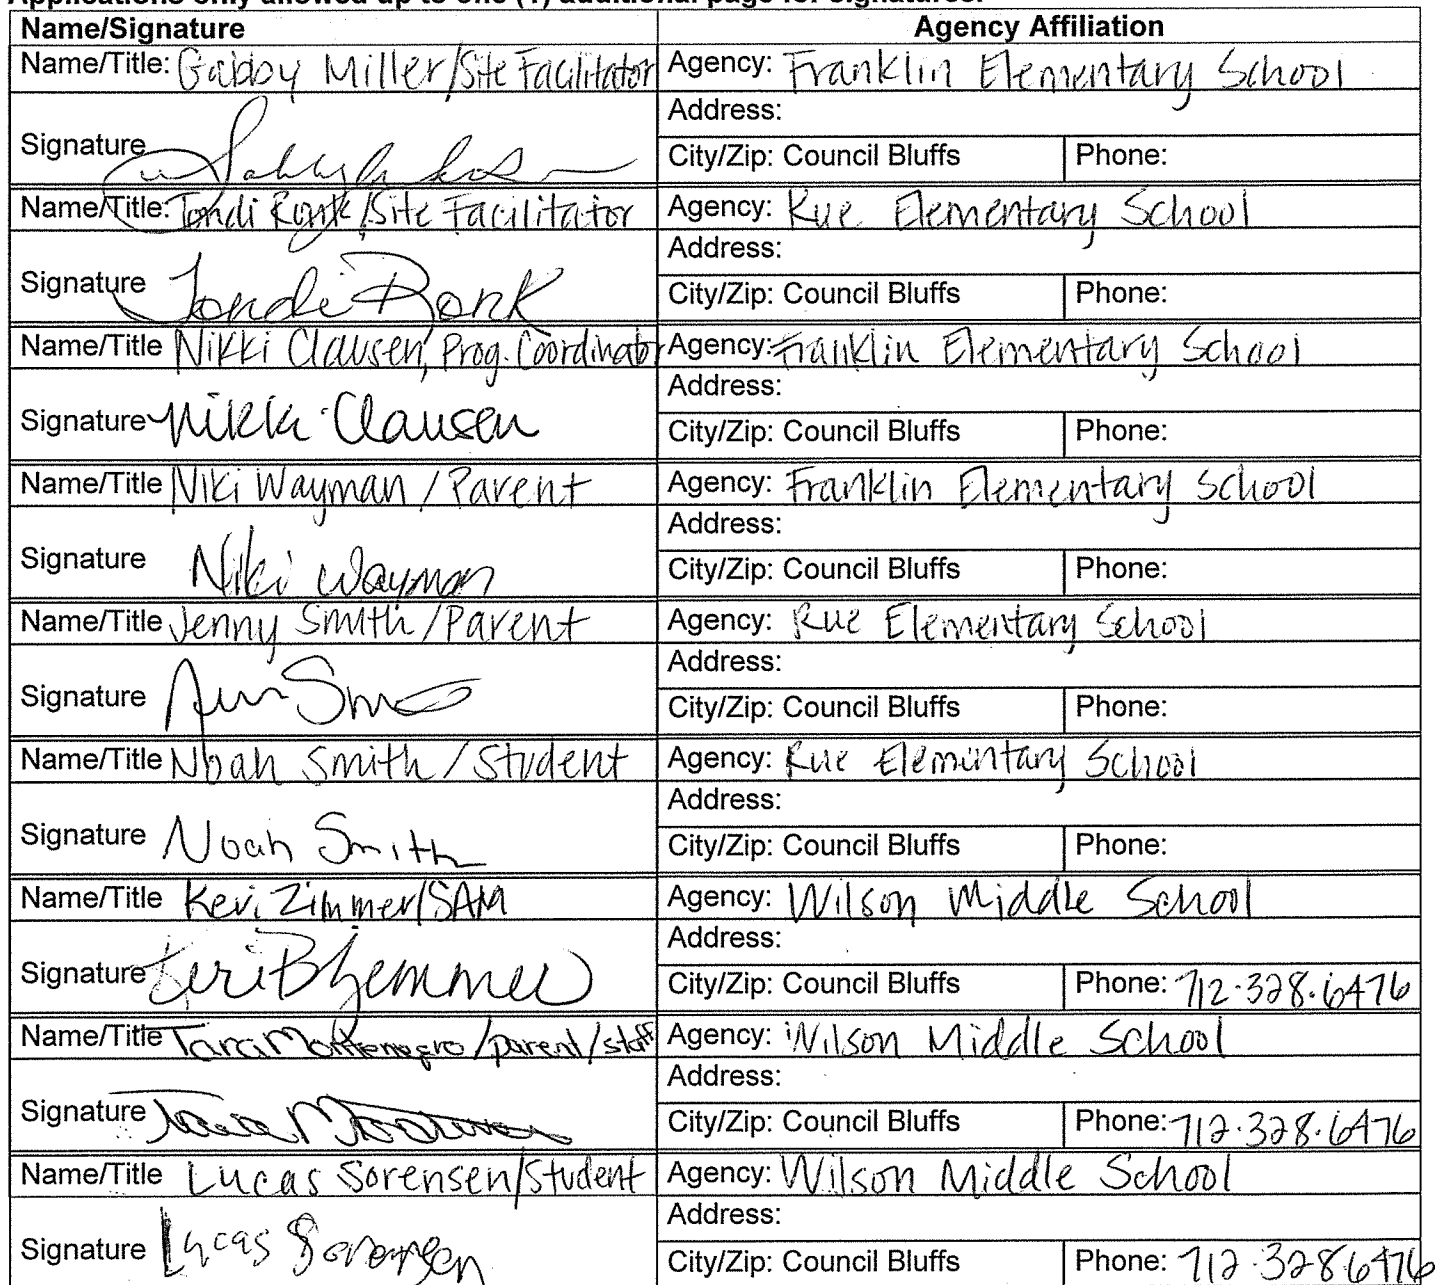 Applications only allowed up to one (1) additional page for signatures.
Name/Signature Agency Affiliation
Name/Title: Gabby Miller/Site Facilitator Agency: Franklin Elementary School
Address:
Signature
City/Zip: Council Bluffs Phone:
Name/Title: Tondi Ronk/Site Facilitator Agency: Rue Elementary School
Address:
Signature Tondi Ronk
City/Zip: Council Bluffs Phone:
Name/Title Nikki Clausen, Prog. Coordinator Agency: Franklin Elementary School
Address:
Signature Nikki Clausen
City/Zip: Council Bluffs Phone:
Name/Title Niki Wayman / Parent Agency: Franklin Elementary School
Address:
Signature Niki Wayman
City/Zip: Council Bluffs Phone:
Name/Title Jenny Smith / Parent Agency: Rue Elementary School
Address:
Signature
City/Zip: Council Bluffs Phone:
Name/Title Noah Smith / Student Agency: Rue Elementary School
Address:
Signature Noah Smith
City/Zip: Council Bluffs Phone:
Name/Title Keri Zimmer/SAM Agency: Wilson Middle School
Address:
Signature Keri B Zimmer
City/Zip: Council Bluffs Phone: 712.328.6476
Name/Title Tara Montenegro/parent/staff Agency: Wilson Middle School
Address:
Signature Tara
City/Zip: Council Bluffs Phone: 712.328.6476
Name/Title Lucas Sorensen/Student Agency: Wilson Middle School
Address:
Signature Lucas Sorensen
City/Zip: Council Bluffs Phone: 712.328.6476